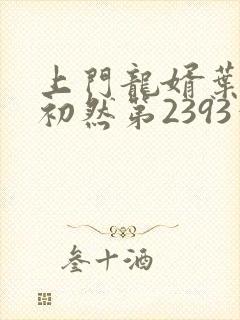 上門龍婿葉
初然第2393
叁十酒